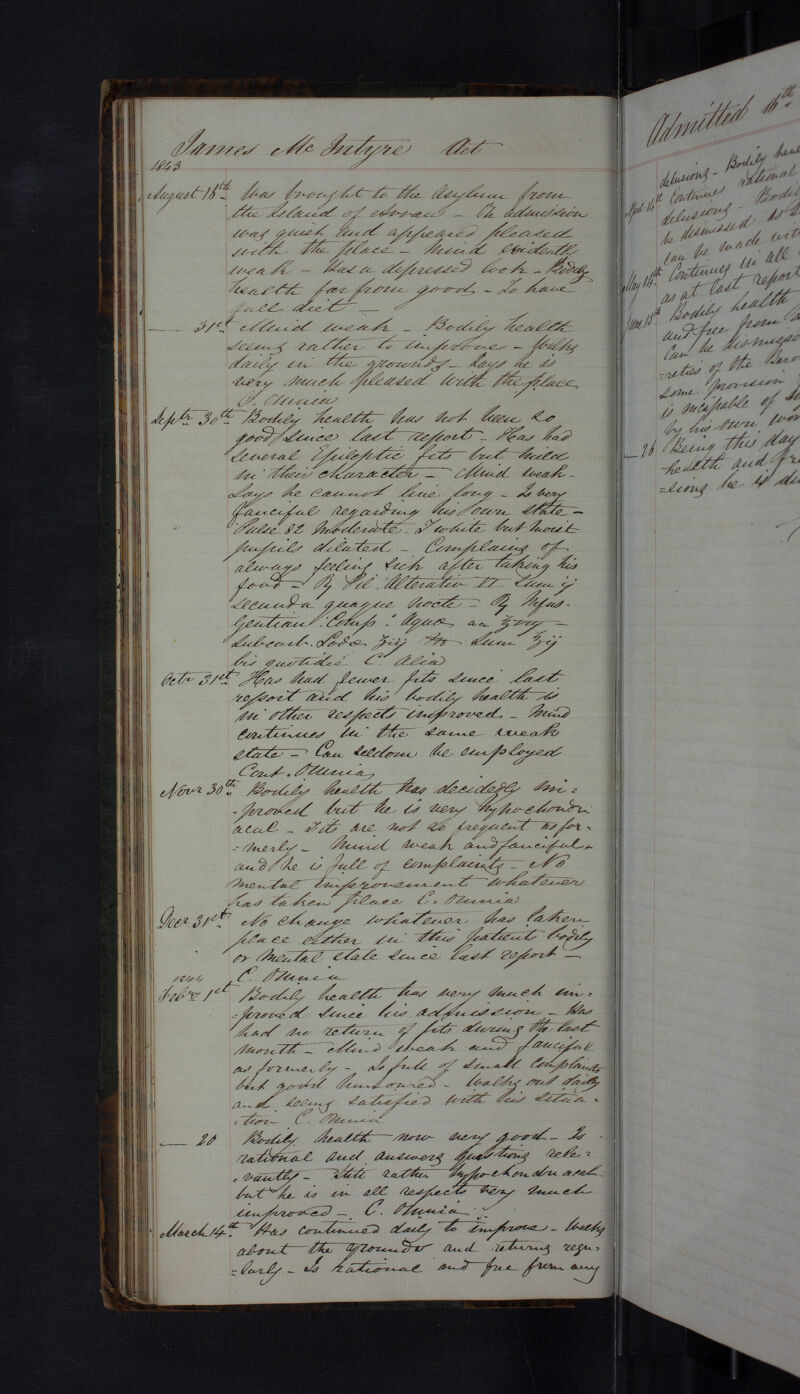 James McIntyre Aet
1843
August 18th Was brought to the Asylum from
the Island of Arran - On admission
was quiet and appeared pleased
with the place - Mind evidently
weak - Has a depressed look - Bodily
health far from good - To have
full diet -
— 31st Mind weak - Bodily health
seems rather to improve - Walks
daily in the grounds - Says he is
very much pleased with the place
C. Omnia
Septr 30th Bodily health has not been so
good since last report - Has had
several Epileptic fits but mild
in their character - Mind weak -
Says he cannot live long - Is very
fanciful regarding his own state -
Pulse 82 Moderate. T white but moist
pupils dilated - Complains of
always feeling sick after taking his
food - ℞ Pil. Alterativ Sum ij
secunda quaque nocte - ℞ Infus.
Gentian. Comp: Aqua aa
Subcarb. Soda Sum
bis quotidie C. alia
Octr 31st Has had fewer fits since last
report and his bodily health is
in other respects improved - Mind
continues in the same weak
state - Can seldom be employed
Cont. Omnia
Novr 30th Bodily health has decidedly im=
=proved but he is very hypochondri
acal - Fits are not so frequent as for=
=merly - Mind weak and fanciful -
and he is full of complaints - No
mental improvement whatever
has taken place C. Omnia
Decr 31st No change whatever has taken
place either in this patients bodily
or mental state since last report -
C. Omnia
1844
Feby 1st Bodily health has very much im=
=proved since his admission - Has
had no return of fits during the last
month - Mind weak and fanciful
as formerly - Is full of small complaints
but good humoured - Walks out daily
and seems satisfied with his situa=
=tion C. Omnia
— 20 Bodily health now very good - Is
rational and answers questions rele=
=vantly - Still rather hypochondriacal
but he is in all respects very much
improved - C. Omnia
March 14th Has continued daily to improve - Walks
about the grounds and returns regu=
=larly - Is rational and free from any
Admitted 16th
delusions - Bodily
April 14th Continues rational
delusions - Bodil
be dismissed as
can be made
May 14th Continues in all
as at last report
June 18th Bodily health
and free from
Can be
of the
some provision
is incapable of
by his own
— 26 Being this day
health and
=sions he is